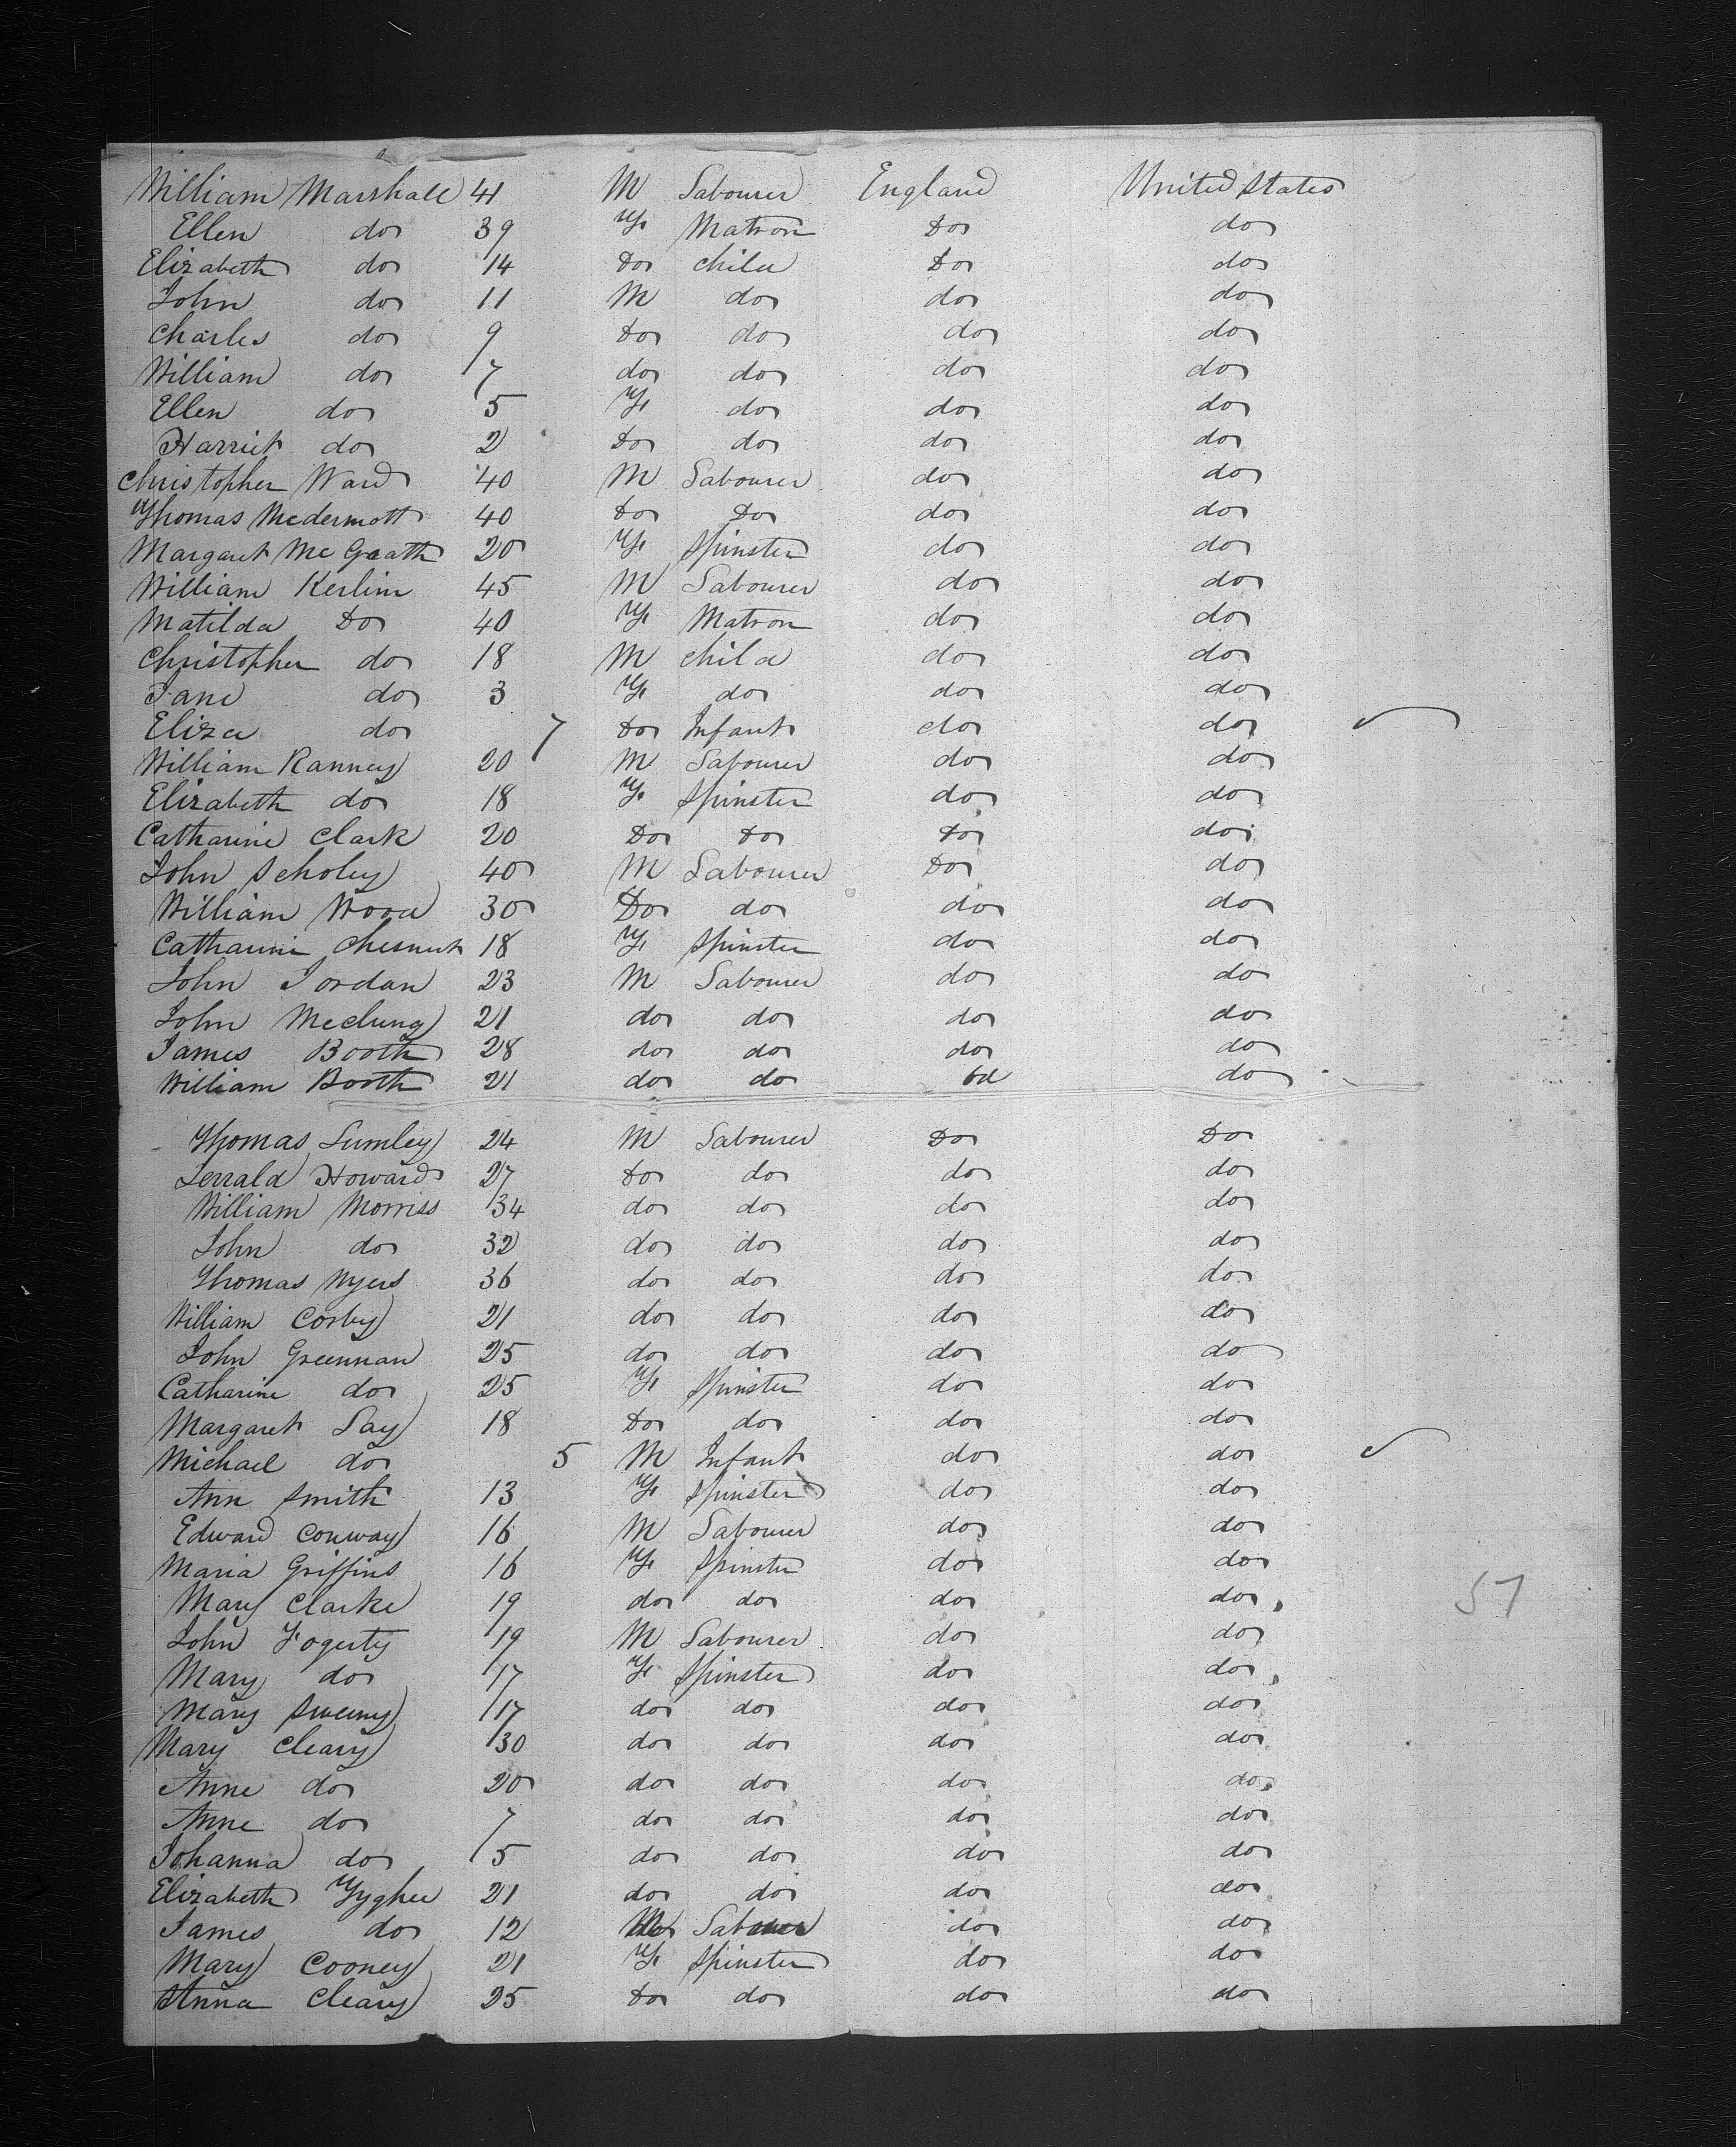 William Marshall 41 M Labourer England United States
Ellen do 39 F. Matron Do do
Elizabeth do 14 Do child Do do
John do 11 M do do do
Charles do 9 Do do do do
William do 7 do do do do
Ellen do 5 F. do do do
Harriet do 2 Do do do do
Christopher Ward 40 M Labourer do do
Thomas Mcdermott 40 Do Do do do
Margaret Mc Graath 20 F. Spinster do do
William Kerlin 45 M Labourer do do
Matilda Do 40 F. Matron do do
Christopher do 18 M child do do
Jane do 3 F. do do do
Eliza do 7 Do Infant do do
William Ranney 20 M Labourer do do
Elizabeth do 18 F. Spinster do do
Catharine Clark 20 Do Do Do do
John Scholey 40 M Labourer Do do
William Wood 30 Do do do do
Catharine Chesnut 18 F. Spinster do do
John Jordan 23 M Labourer do do
John Mcclung 21 do do do do
James Booth 28 do do do do
William Booth 21 do do do
Thomas Lumley 24 M Labourer Do Do
Jerrald Howard 27 Do do do do
William Morriss 34 do do do do
John do 32 do do do do
Thomas 36 do do do do
William Corby 21 do do do do
John Greennan 25 do do do do
Catharine do 25 F. Spinster do do
Margaret Lay 18 Do do do do
Michael do 5 M Infant do do
Ann Smith 13 F. Spinster do do
Edward Conway 16 M Labourer do do
Maria Griffins 16 F. Spinster do do
Mary Clarke 19 do do do do 51
John Fogerty 19 M Labourer do do
Mary do 17 F. Spinster do do
Mary Sweeny 17 do do do do
Mary Cleary 30 do do do do
Anne do 20 do do do do
Anne do 7 do do do do
Johanna do 5 do do do do
Elizabeth Fyghee 21 do do do do
James do 12 M Labourer do do
Mary Cooney 21 F. Spinster do do
Anna Cleary 25 Do do do do